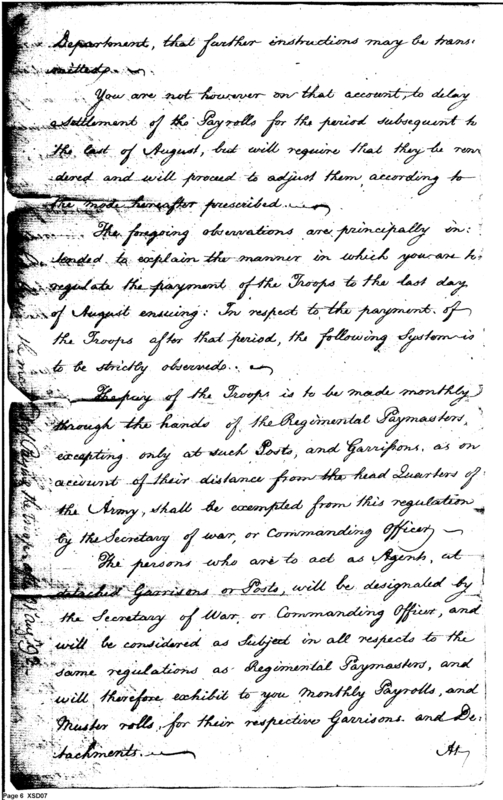 Department, that further instructions may be trans:
mitted.
You are not however on that account, to delay
a settlement of the Payrolls for the period subsequent to
the last of August, but will require that they be ren
dered and will proceed to adjust them according to
the mode hereafter prescribed.
The foregoing observations are principally in:
tended to explain the manner in which you are to
regulate the payment of the Troops to the last day
of August ensuing: In respect to the payment of
the Troops after that period, the following System is
to be strictly observed.
The pay of the Troops is to be made monthly
through the hands of the Regimental Paymasters,
excepting only at such Posts, and Garrisons, as on
account of their distance from the head Quarters of
the Army, shall be exempted from this regulation
by the Secretary of war, or Commanding Officer
The persons who are to act as Agents, at
detached Garrisons or Posts, will be designated by
the Secretary of War, or Commanding Officer, and
will be considered as Subject in all respects to the
same regulations as Regimental Paymasters, and
will therefore exhibit to you Monthly Payrolls, and
Muster rolls, for their respective Garrisons and De
tachments.
At
Page 6 XSD07